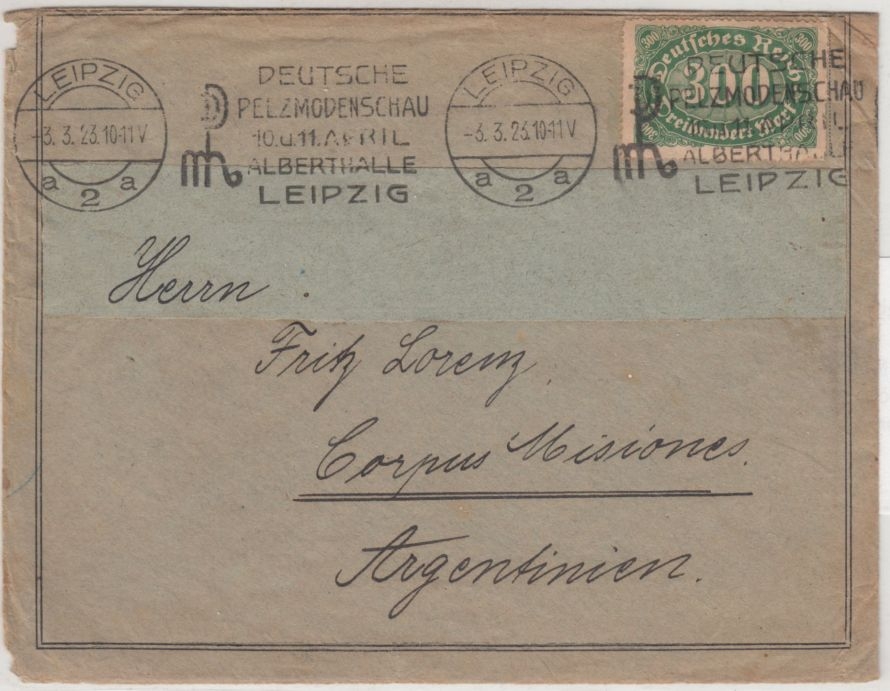 LEIPZIG
-3.3.23.10-11V
a 2 a
DEUTSCHE
PELZMODENSCHAU
10.u.11.APRIL
ALBERTHALLE
LEIPZIG
LEIPZIG
-3.3.23.10-11V
a 2 a
Deutsches Reich
300
300
300
Dreihundert Mark
DEUTSCHE
PELZMODENSCHAU
ALBERTHALLE
LEIPZIG
Herrn
Fritz Lorenz
Corpus Misiones.
Argentinien.